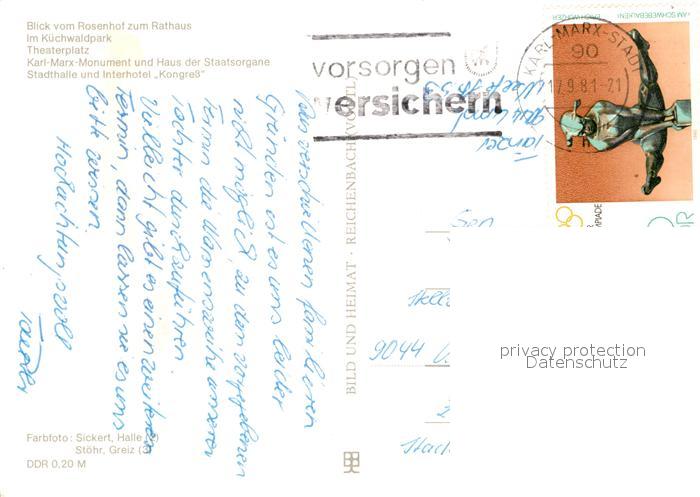 Blick vom Rosenhof zum Rathaus
Im Küchwaldpark
Theaterplatz
Karl-Marx-Monument und Haus der Staatsorgane
Stadthalle und Interhotel „Kongreß"
vorsorgen
versichern
KARL-MARX-STADT
90
17.9.81-21
„AM SCHWEBEBALKEN"
DDR
Aus verschiedenen familiären
Gründen ist es uns leider
nicht möglich, zu den vorgegebenen
Termin die unserer
Tochter durchzuführen.
Vielleicht gibt es einen zweiten
Termin, dann lassen sie es uns
bitte wissen.
Hochachtungsvoll
BILD UND HEIMAT · REICHENBACH (VOGTL)
9044
privacy protection
Datenschutz
Farbfoto: Sickert, Halle
Stöhr, Greiz
DDR 0,20 M